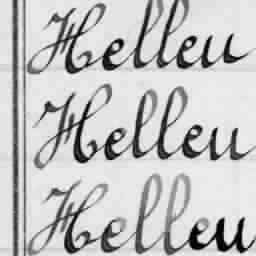 Hellen
Hellen
Hellen